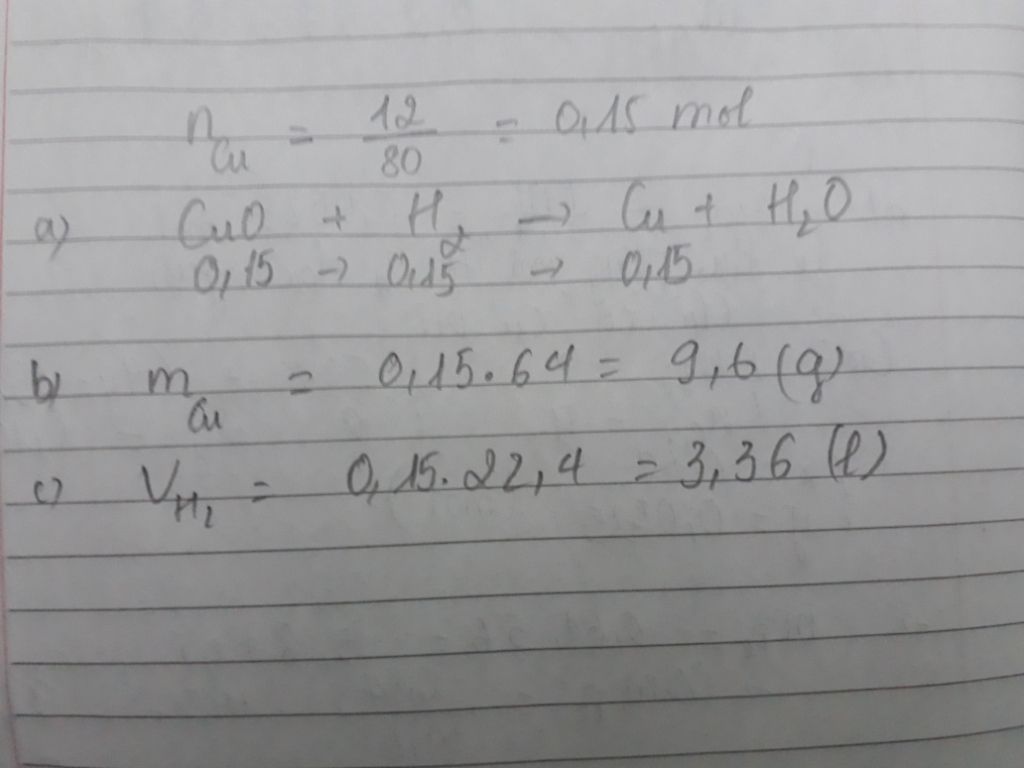 n_Cu = 12/80 = 0,15 mol
a) CuO + H₂ → Cu + H₂O
0,15 → 0,15 → 0,15
b) m_Cu = 0,15.64 = 9,6 (g)
c) V_H₂ = 0,15.22,4 = 3,36 (l)